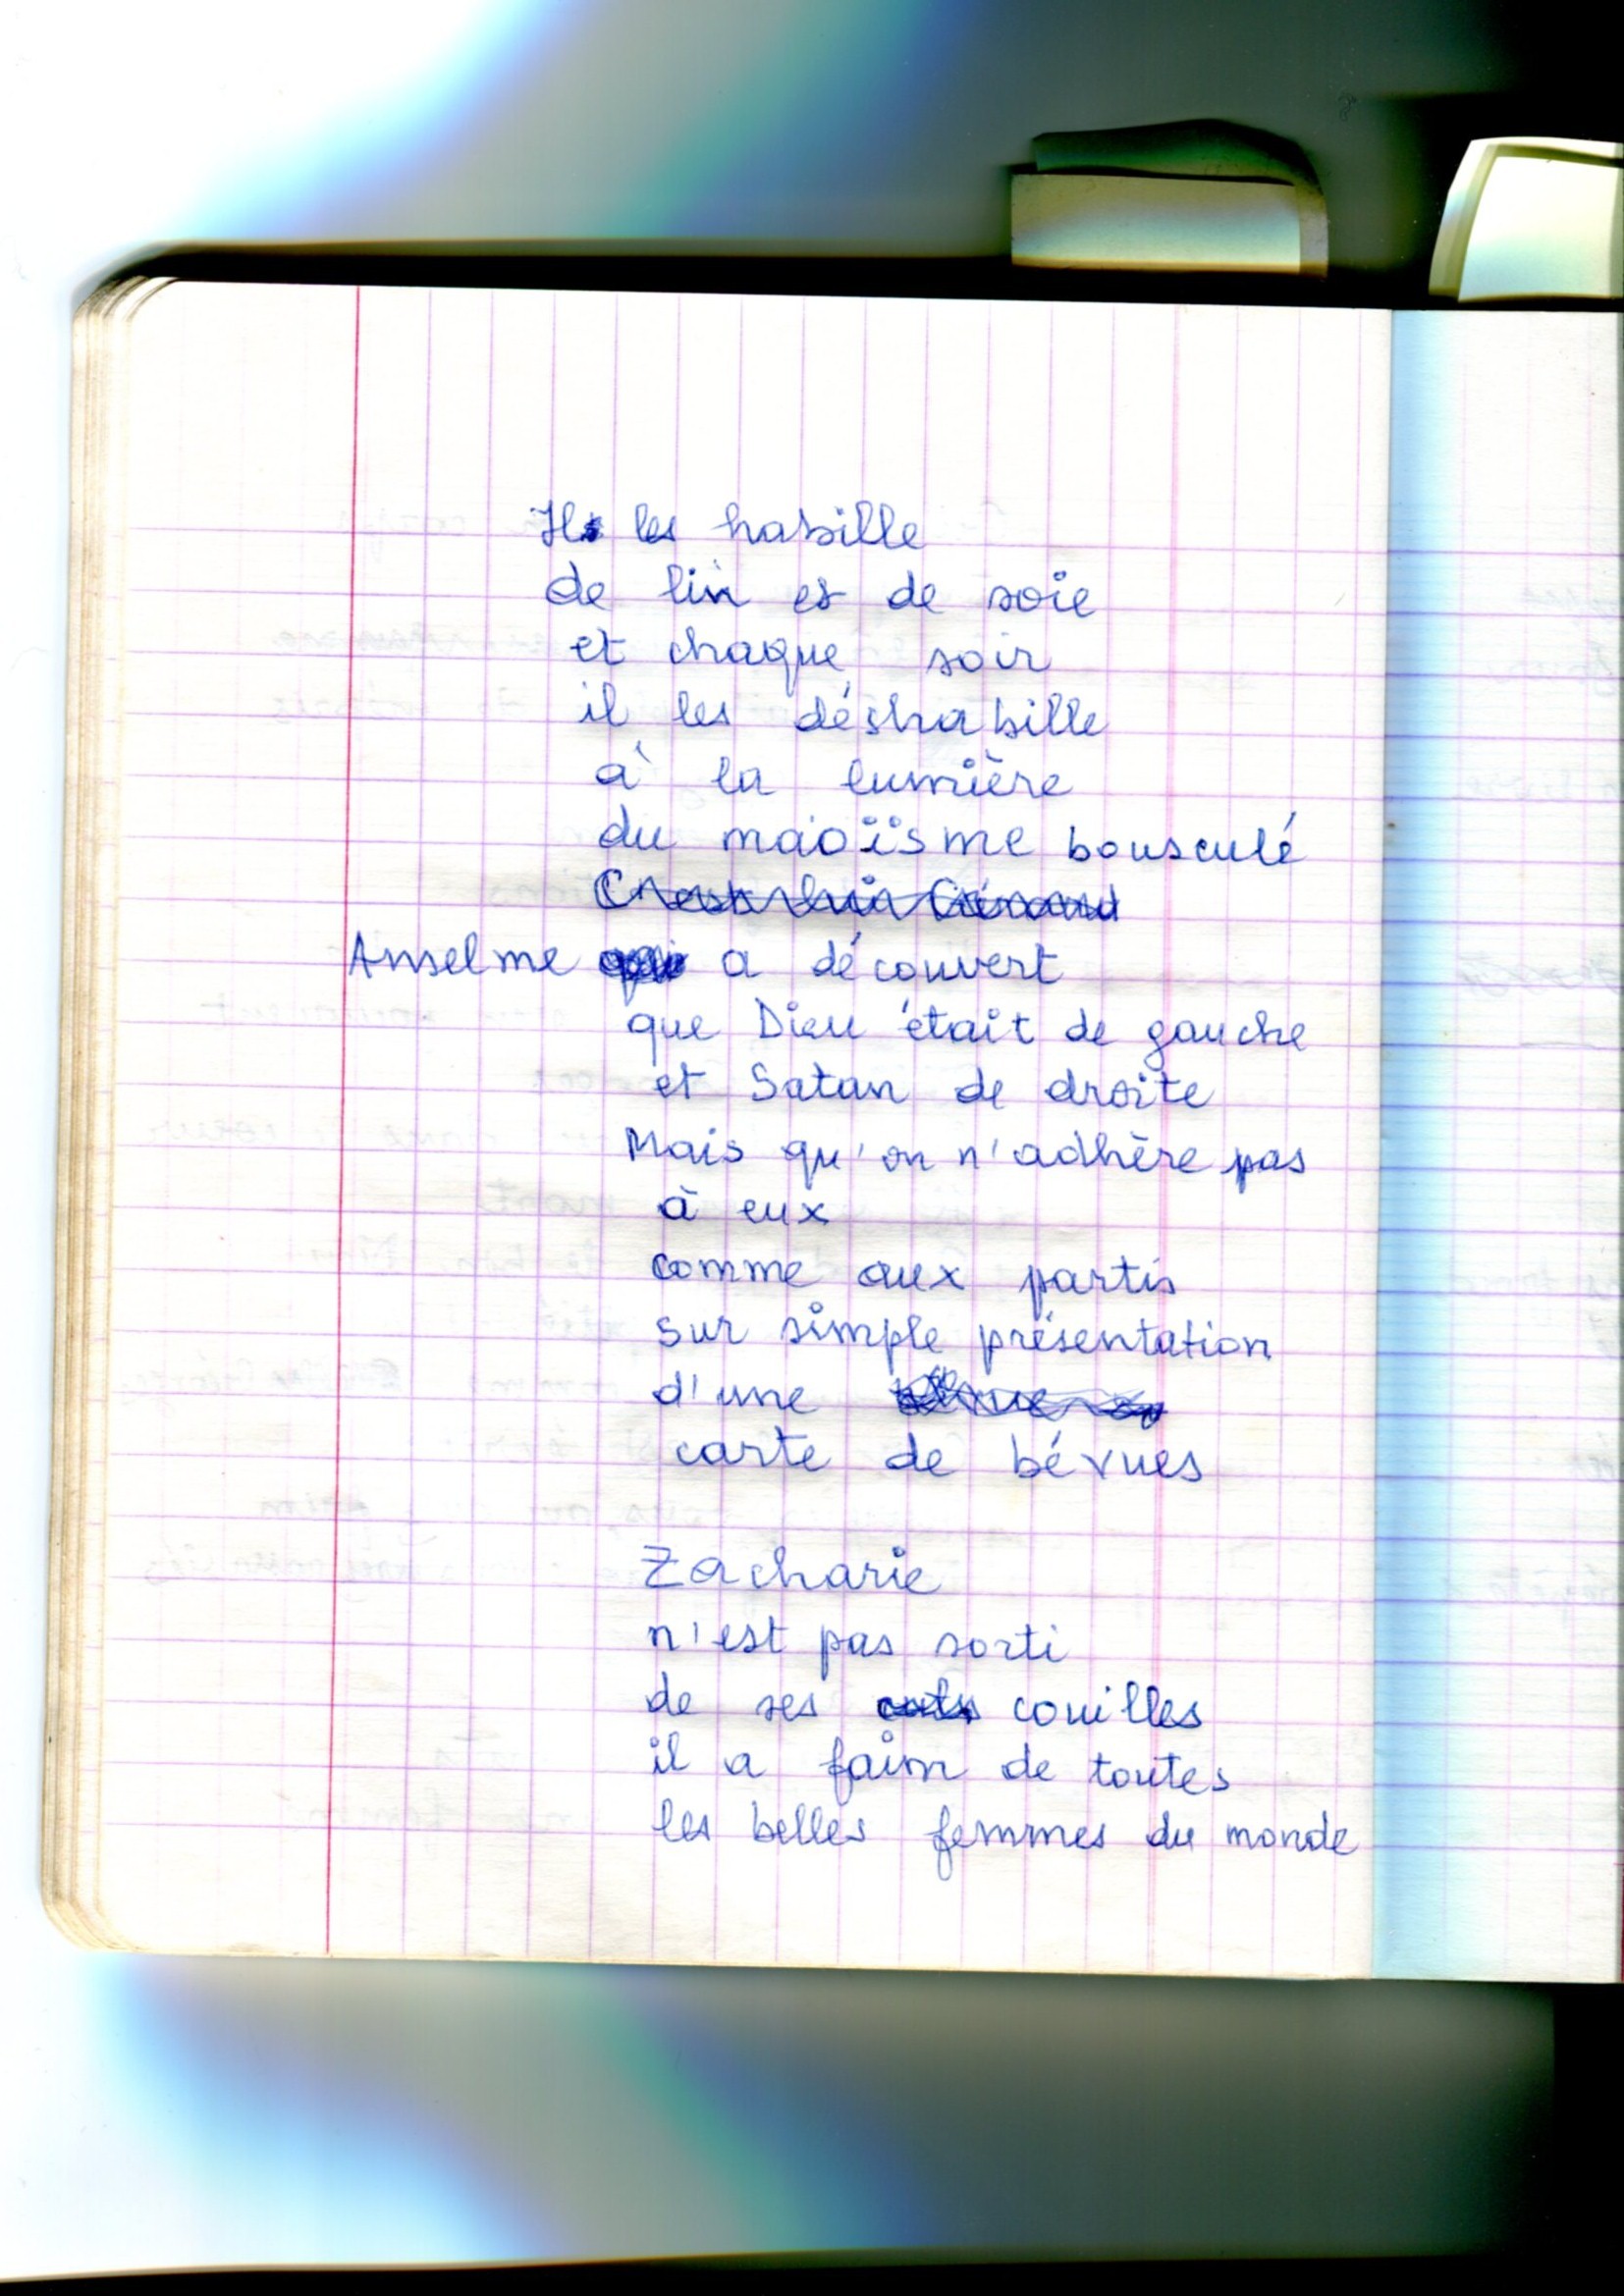 Il les habille
de lin et de soie
et chaque soir
il les déshabille
à la lumière
du maoïsme bousculé
C'est lui Gérard
Anselme qui a découvert
que Dieu était de gauche
et Satan de droite
Mais qu'on n'adhère pas
à eux
comme aux partis
sur simple présentation
d'une
carte de bévues
Zacharie
n'est pas sorti
de ses couilles
il a faim de toutes
les belles femmes du monde